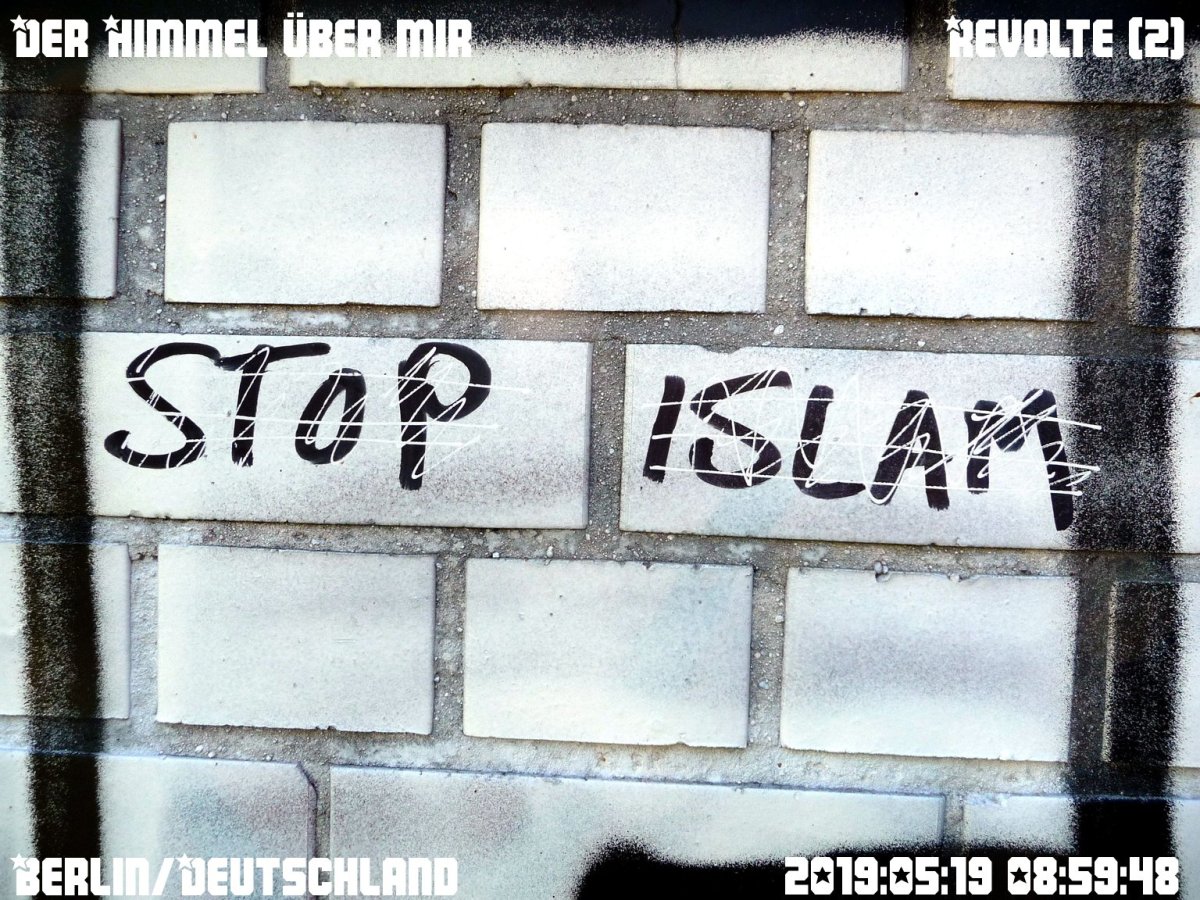 Der Himmel über mir
Revolte (2)
STOP ISLAM
Berlin/Deutschland
2019:05:19 08:59:48